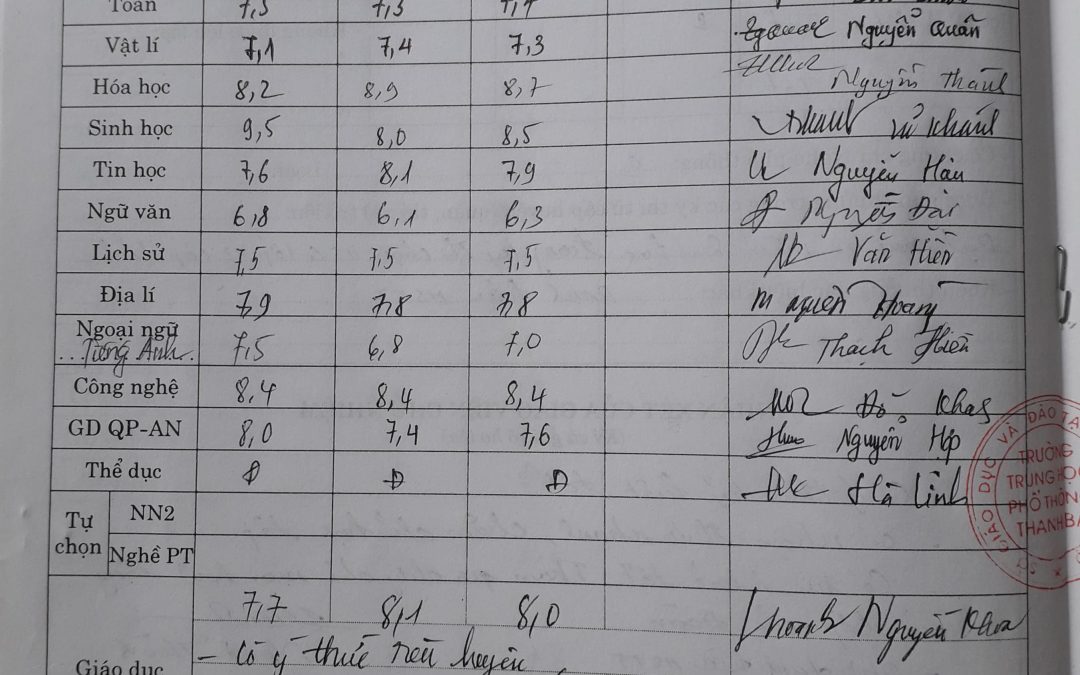 Toán 7,5 7,3 7,4
Vật lí 7,1 7,4 7,3 Nguyễn Quân
Hóa học 8,2 8,9 8,7 Nguyễn Thanh
Sinh học 9,5 8,0 8,5 Khánh
Tin học 7,6 8,1 7,9 Nguyễn Hàn
Ngữ văn 6,8 6,1 6,3 Nguyễn Đài
Lịch sử 7,5 7,5 7,5 Văn Hiền
Địa lí 7,9 7,8 7,8 Hoang
Ngoại ngữ
...Tiếng Anh.. 7,5 6,8 7,0 Thạch Hiền
Công nghệ 8,4 8,4 8,4 Đỗ
GD QP-AN 8,0 7,4 7,6 Nguyễn Hợp
Thể dục Đ Đ Đ Hà Linh
Tự chọn
NN2
Nghề PT
7,7 8,1 8,0 Nguyễn Khoa
Giáo dục
- Có ý thức rèn luyện
SỞ GIÁO DỤC VÀ ĐÀO TẠ
TRƯỜNG
TRUNG HỌC
PHỔ THÔN
THANH BA